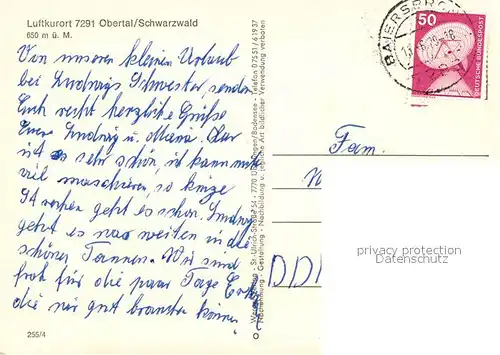 Luftkurort 7291 Obertal/Schwarzwald
650 m ü. M.
Von unserem kleinen Urlaub
bei Ludwigs Schwester, senden
Euch recht herzliche Grüße
Eure Ludwig u. Maria.
ist es sehr schön, ich kann nicht
viel marschieren, so kurze
Strecken geht es schon. Ludwig
geht es was weiter in die
schönen Tannen. Wir sind
froh für die paar Tage
die wir gut brauchen können
255/4
St.-Ulrich-Straße 54 - 7770 Überlingen/Bodensee - Telefon 07551/61937
Nachahmung - Gestaltung - Nachbildung u. jegliche Art bildlicher Verwendung verboten
BAIERSBRONN
50
DEUTSCHE BUNDESPOST
Fam.
DDR
privacy protection
Datenschutz